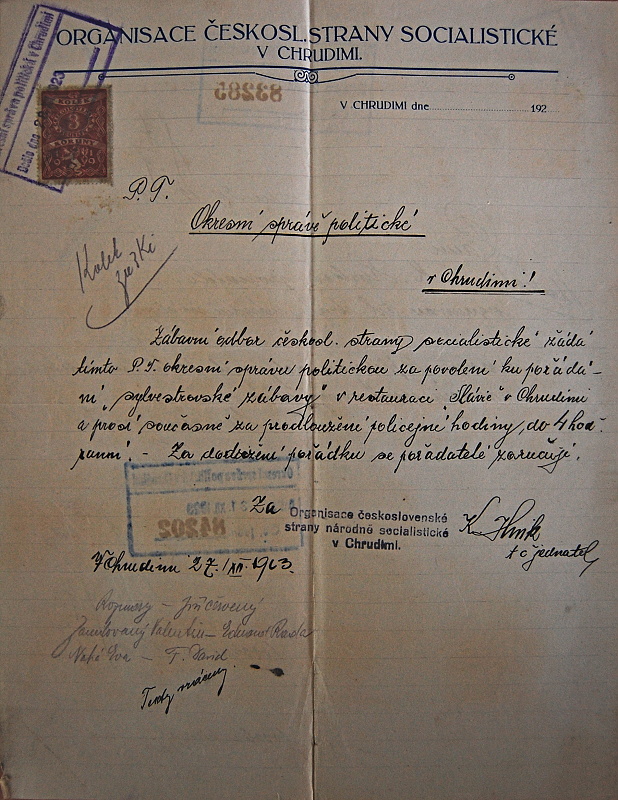 ORGANISACE ČESKOSL. STRANY SOCIALISTICKÉ
V CHRUDIMI.
83285
V CHRUDIMI dne 192
správa politická v Chrudimi
Došlo dne
KOLEK
3
KORUNY
P. T.
Okresní správě politické
v Chrudimi!
Kolek
Zábavní odbor českosl. strany socialistické žádá
tímto P. T. okresní správu politickou za povolení ku pořádá-
ní „sylvestrovské zábavy" v restauraci „Slávie" v Chrudimi
a prosí současně za prodloužení policejní hodiny do 4 hod.
ranní. - Za dodržení pořádku se pořadatelé zaručují.
Za
Organisace československé
strany národně socialistické
v Chrudimi.
t č jednatel
84202
V Chrudimi 27./XII. 1923.
Rozmary - Jiří Červený
Zamilovaný Valentin - Eduard
Eva - F. David
Texty vráceny